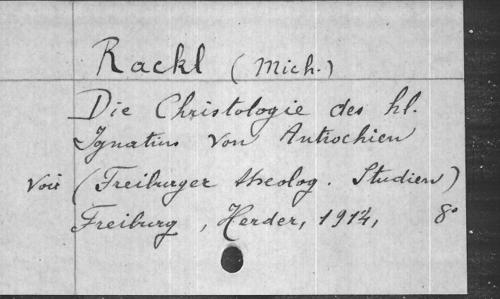 Rackl (Mich.)
Die Christologie des hl.
Ignatius von Antiochien
voir (Freiburger theolog. Studien)
Freiburg, Herder, 1914, 8°